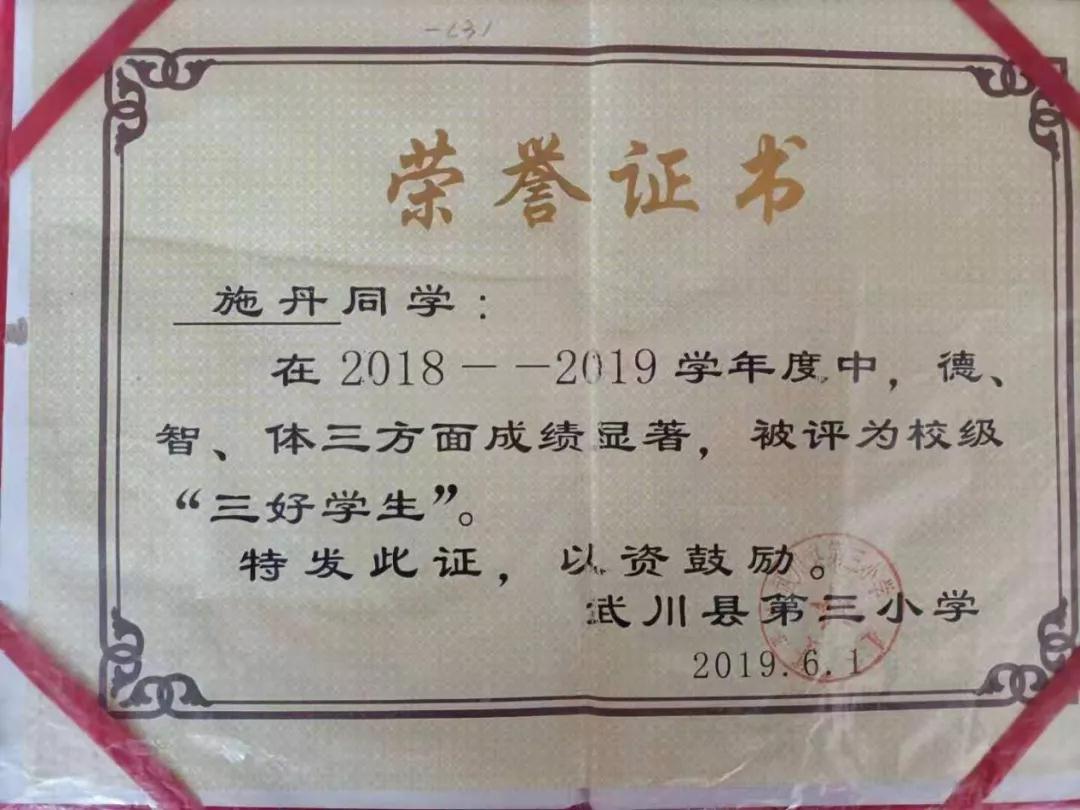 荣誉证书
施丹同学:
在2018——2019学年度中，德、
智、体三方面成绩显著，被评为校级
“三好学生”。
特发此证，以资鼓励。
武川县第三小学
2019.6.1